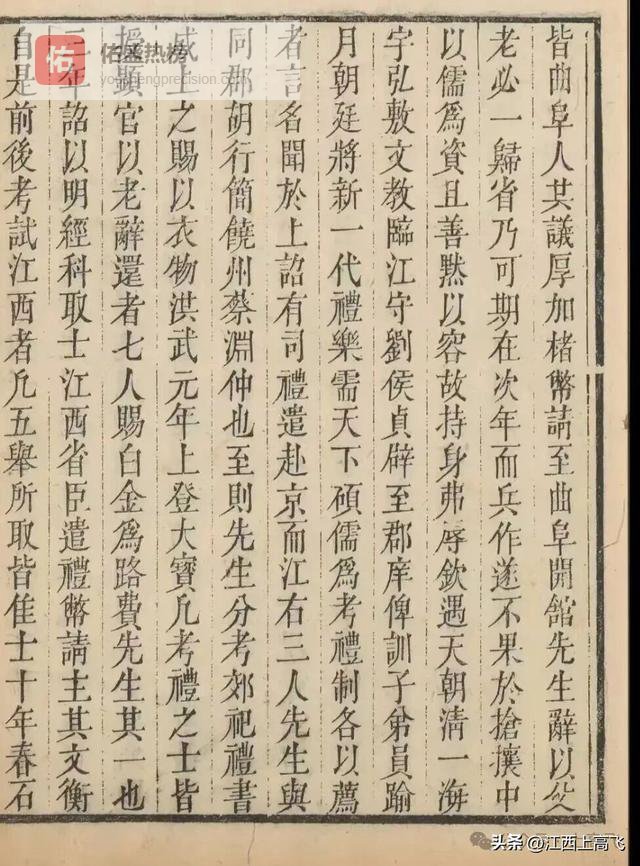 皆曲阜人其議厚加楮幣請至曲阜開舘先生辭以父
老必一歸省乃可期在次年而兵作遂不果於搶攘中
以儒為資且善黙以容故持身弗辱欽遇天朝清一海
宇弘敷文教臨江守劉侯貞辟至郡庠俾訓子弟員踰
月朝廷將新一代禮樂需天下碩儒為考禮制各以薦
者言名聞於上詔有司禮遣赴京而江右三人先生與
同郡胡行簡饒州蔡淵仲也至則先生分考郊祀禮書
成上之賜以衣物洪武元年上登大寶凢考禮之士皆
授顯官以老辭還者七人賜白金為路費先生其一也
三年詔以明經科取士江西省臣遣禮幣請主其文衡
自是前後考試江西者凢五舉所取皆佳士十年春石
佑 佑盛热榜
youshengprecision.com
头条 @江西上高飞